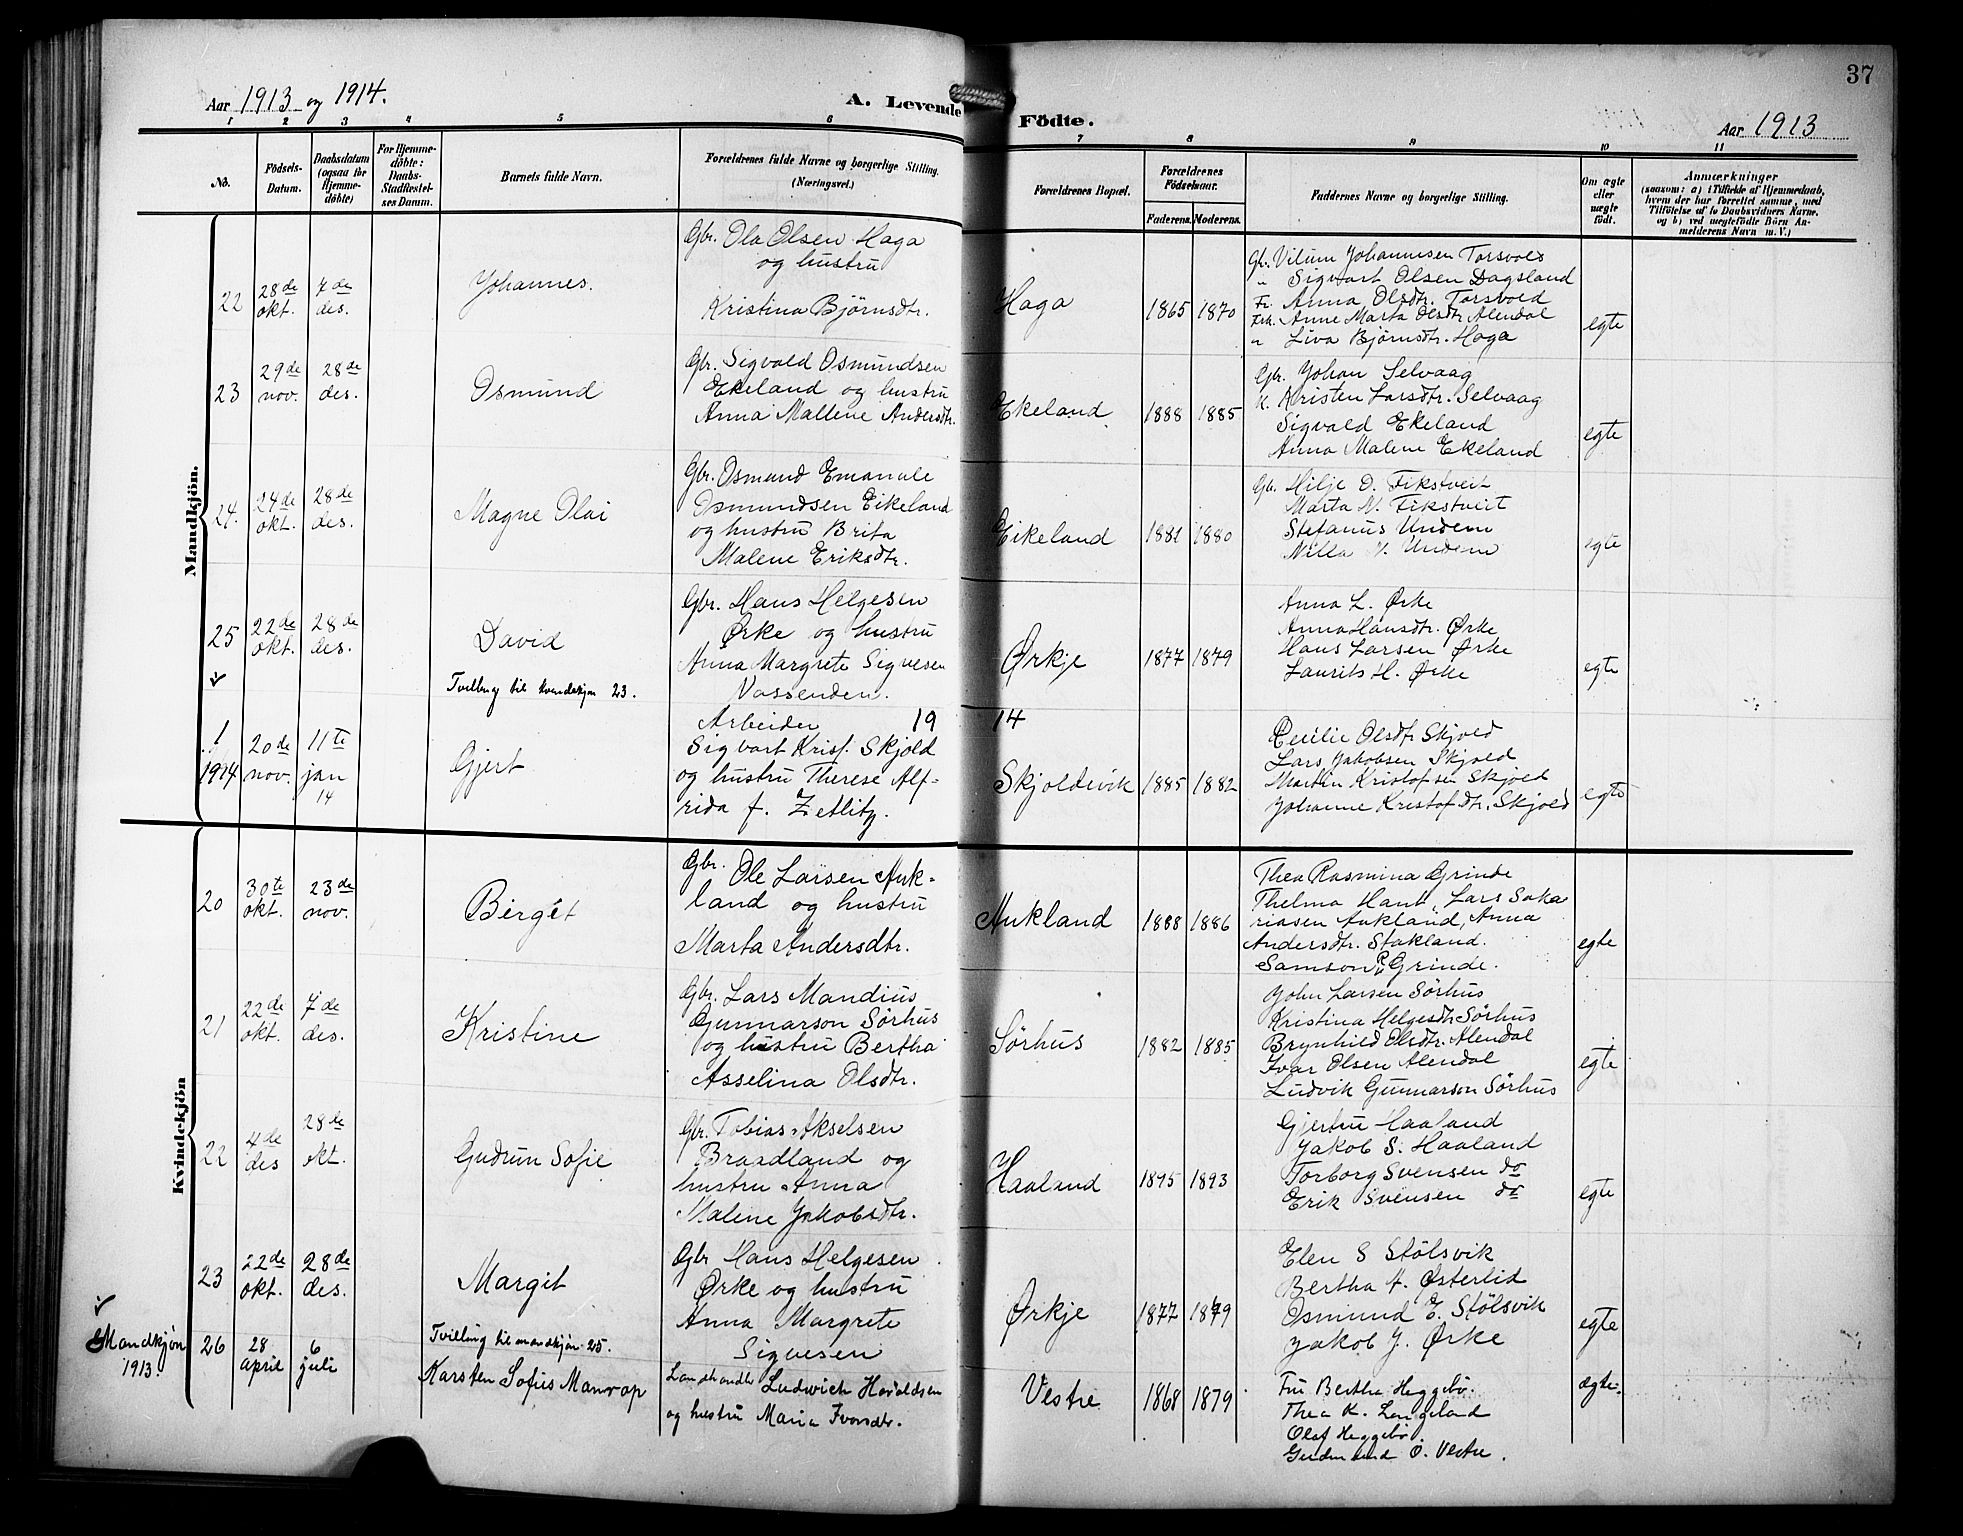 37
Aar 1913 og 1914.
A. Levende Födte.
Aar 1913
1 2 3 4 5 6 7 8 9 10 11
No.
Födsels-Datum.
Daabsdatum (ogsaa for Hjemmedöbte)
For Hjemmedöbte: Daabs-Stadfæstelses Datum.
Barnets fulde Navn.
Forældrenes fulde Navne og borgerlige Stilling. (Næringsvei.)
Forældrenes Bopæl.
Forældrenes Födselsaar.
Faderens. Moderens.
Faddernes Navne og borgerlige Stilling.
Om ægte eller uægte födt.
Anmærkninger
(saasom: a) i Tilfælde af Hjemmedaab, hvem der har forrettet samme, med Tilföielse af to Daabsvidners Navne, og b) ved uægtefödte Börn Anmelderens Navn m. V.)
Mandkjön.
22 28de okt. 7de des. Johannes.
Gbr. Ola Olsen Haga
og hustru
Kristina Bjørnsdtr.
Haga 1865 1870
Gbr. Vilum Johannesen Torsvold
" Sigvart Olsen Dagsland
Fr. Anna Olsdtr. Torsvold
Frk. Anne Marta Olsdtr. Alendal
" Liva Bjørnsdtr. Haga
egte
23 29de nov. 28de des. Osmund
Gbr. Sigvald Osmundsen
Ekeland og hustru
Anna Mallene Andersdtr.
Ekeland 1888 1885
Gbr. Johan Selvaag
K. Kristen Larsdtr. Selvaag
Sigvald Ekeland
Anna Malene Ekeland
egte
24. 24de okt. 28de des. Magne Olai
Gbr. Osmund Emanale
Osmundsen Eikeland
og hustru Brita
Malene Eriksdtr.
Eikeland 1881 1880
Gbr. Hilje O. Fikstveit
Marta N. Fikstveit
Stefanus Undem
Nilla N. Undem
egte
25 22de okt. 28de des. David
Tvilling til kvindekjøn 23.
Gbr. Hans Helgesen
Ørke og hustru
Anna Margrete Sigvesen
Vassenden.
Ørkje 1877 1879
Anna L. Ørke
Anna Hansdtr. Ørke
Hans Larsen Ørke
Laurits H. Ørke
egte
19 14
1 1914 20de nov. 11te jan 14 Gjert
Arbeider
Sigvart Krist. Skjold
og hustru Therese Alf-
rida f. Zetlitz.
Skjoldevik 1885 1882
Cecilie Olsdtr Skjold
Lars Jakobsen Skjold
Martin Kristofsen Skjold
Johanne Kristofdtr. Skjold
egte
Kvindekjön
20 30te okt. 23de nov. Birgit
Gbr. Ole Larsen Auk-
land og hustru
Marta Andersdtr.
Aukland 1888 1886
Thea Rasmina Grinde
Thelma Hant, Lars Saka
riasen Aukland, Anna
Andersdtr. Stakland.
Samson P. Grinde.
egte
21 22de okt. 7de des. Kristine
Gbr. Lars Mandius
Gunnarson Sørhus
og hustru Bertha
Asselina Olsdtr.
Sørhus 1882 1885
John Larsen Sørhus
Kristina Helgesdtr Sørhus
Brynhild Olsdtr. Alendal
Ivar Olsen Alendal
Ludvik Gunnarson Sørhus
egte
22 4de des 28de okt. Gudrun Sofie
Gbr. Tobias Akselsen
Braadland og
hustru Anna
Malene Jakobsdtr.
Haaland 1895 1893
Gjertru Haaland
Jakob S. Haaland
Torborg Svensen do
Erik Svensen do
egte
23 22de okt. 28de des. Margit
Tvilling til mandkjøn 25.
Gbr Hans Helgesen
Ørke og hustru
Anna Margrete
Sigvesen
Ørkje 1877 1879
Elen S Stölsvik
Bertha A. Østerlid
Osmund E. Stölsvik
Jakob J. Ørke
egte
Mandkjøn 1913.
26 28 april 6 juli Karsten Sofus Manrop
Landhandler Ludwich Haraldsen
og hustru Maria Ivarsdtr.
Vestre 1868 1879
Fru Bertha Heggebø.
Thea K. Langeland
Olaf Heggebø
Gudmund O. Vestre.
ægte.